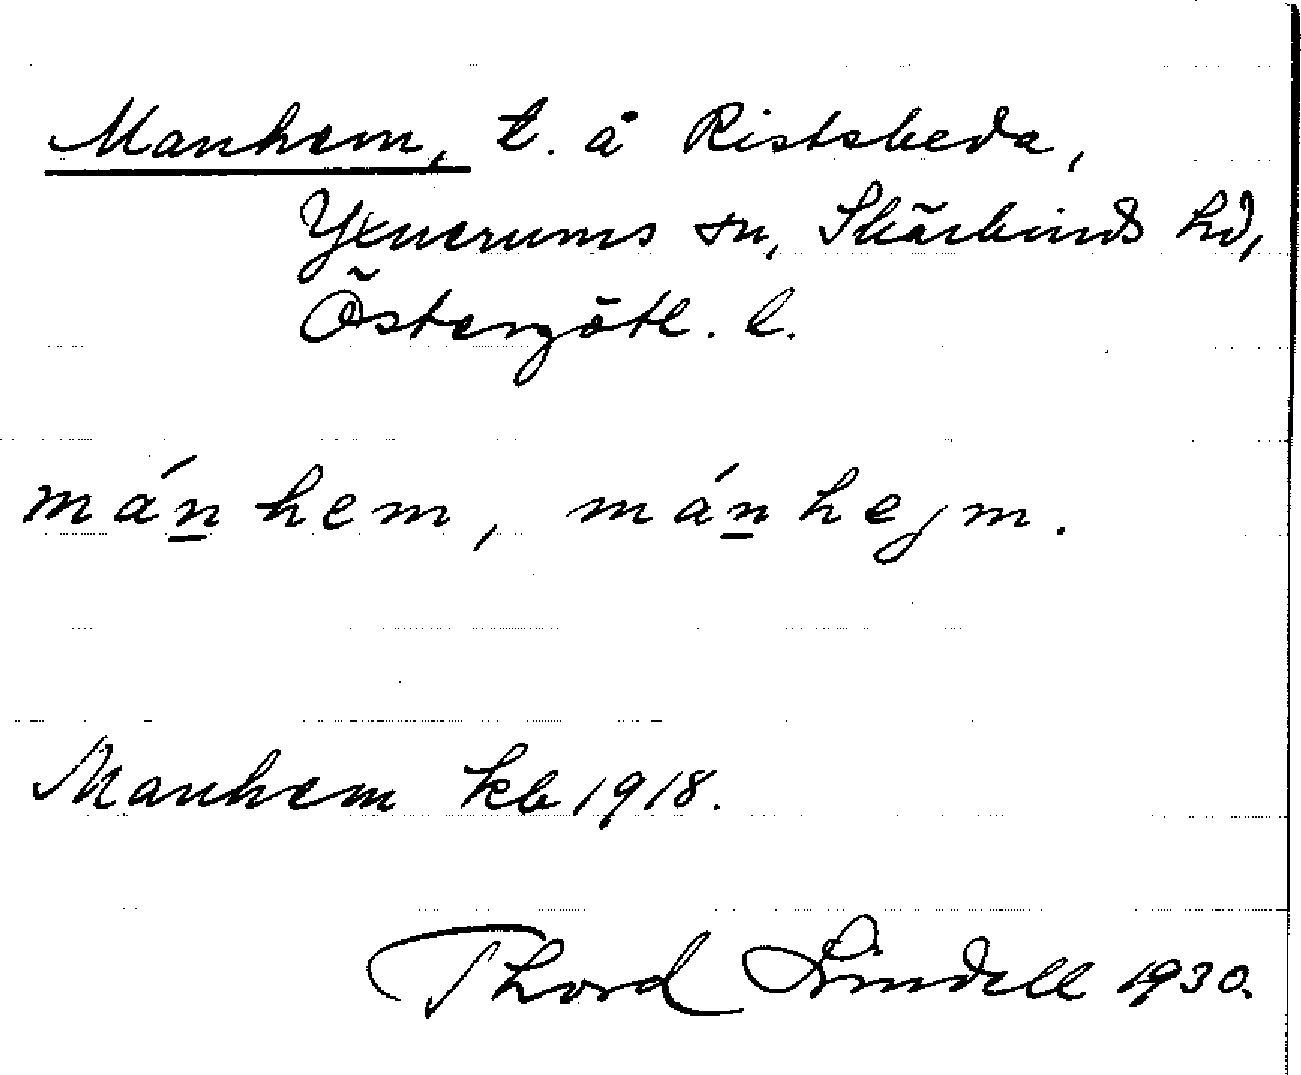 Manhem, t. å Ristsbeda,
Yxnerums sn, Skärkinds hd,
Östergötl. l.
mánhem, mánhejm.
Manhem kb 1918.
Thord Lindell 1930.